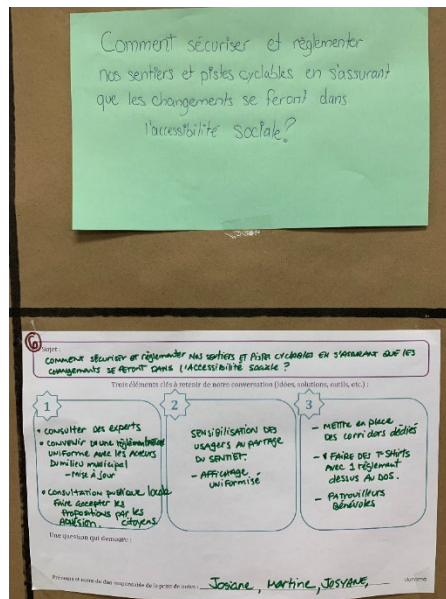 Comment sécuriser et règlementer
nos sentiers et pistes cyclables en s'assurant
que les changements se feront dans
l'accessibilité sociale?
6
Sujet :
COMMENT SÉCURISER ET RÈGLEMENTER NOS SENTIERS ET PISTES CYCLABLES EN S'ASSURANT QUE LES
CHANGEMENTS SE FERONT DANS L'ACCESSIBILITÉ SOCIALE ?
Trois éléments clés à retenir de notre conversation (idées, solutions, outils, etc.) :
1
• CONSULTER DES EXPERTS
• CONVENIR D'UNE RÈGLEMENTATION
UNIFORME AVEC LES ACTEURS
DU MILIEU MUNICIPAL
- MISE À JOUR
• CONSULTATION PUBLIQUE locale
FAIRE ACCEPTER LES
PROPOSITIONS PAR LES
ADHÉSION. citoyens
2
SENSIBILISATION DES
USAGERS AU PARTAGE
DU SENTIER.
- AFFICHAGE
UNIFORMISÉ
3
- METTRE EN PLACE
DES CORRIDORS DÉDIÉS
- FAIRE DES T-SHIRTS
AVEC 1 RÈGLEMENT
DESSUS AU DOS.
- PATROUILLEURS
BÉNÉVOLES
Une question qui demeure :
Prénom et nom de la responsable de la prise de notes : Josiane, Martine, JOSYANE,